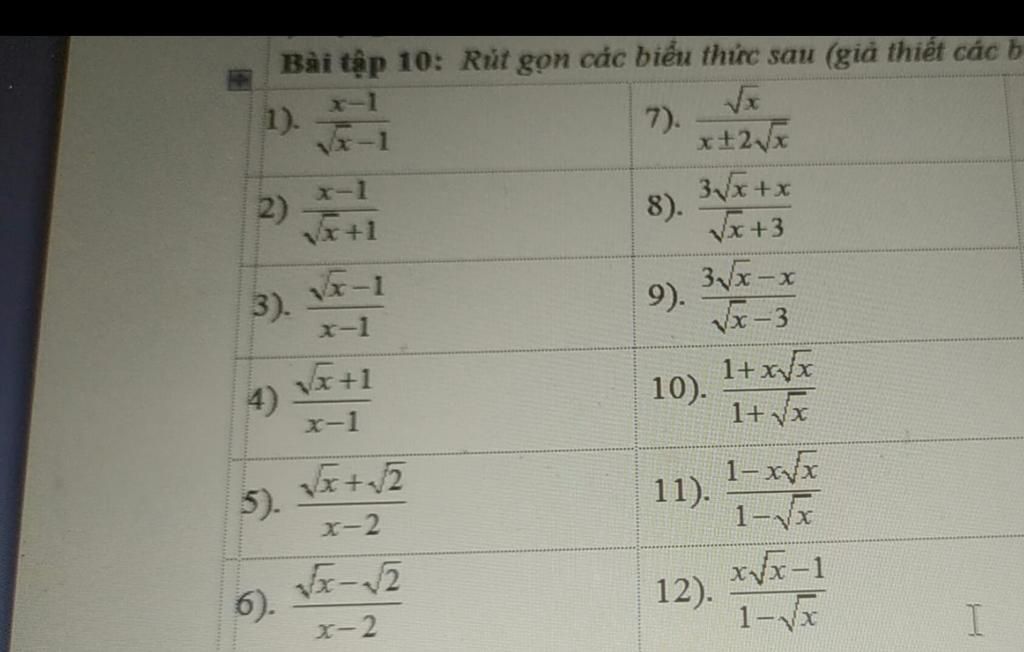 Bài tập 10: Rút gọn các biểu thức sau (giả thiết các b
1). \frac{x-1}{\sqrt{x}-1}
7). \frac{\sqrt{x}}{x±2\sqrt{x}}
2) \frac{x-1}{\sqrt{x}+1}
8). \frac{3\sqrt{x}+x}{\sqrt{x}+3}
3). \frac{\sqrt{x}-1}{x-1}
9). \frac{3\sqrt{x}-x}{\sqrt{x}-3}
4) \frac{\sqrt{x}+1}{x-1}
10). \frac{1+x\sqrt{x}}{1+\sqrt{x}}
5). \frac{\sqrt{x}+\sqrt{2}}{x-2}
11). \frac{1-x\sqrt{x}}{1-\sqrt{x}}
6). \frac{\sqrt{x}-\sqrt{2}}{x-2}
12). \frac{x\sqrt{x}-1}{1-\sqrt{x}}